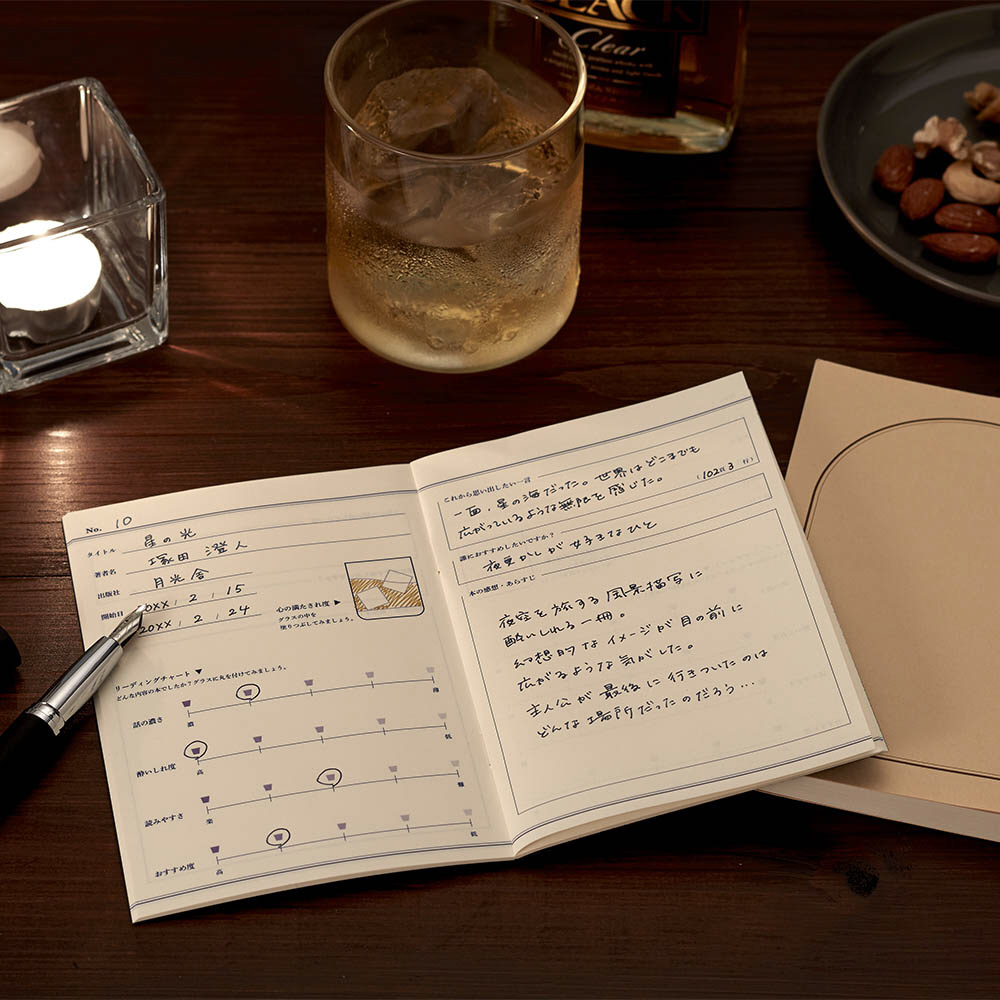 BLACK
Clear
No. 10
タイトル 星の光
著者名 塚田 澄人
出版社 月光舎
開始日 20XX / 2 / 15
20XX / 2 / 24
心の満たされ度 ▶
グラスの中を
塗りつぶしてみましょう。
リーディングチャート ▼
どんな内容の本でしたか？グラスに丸を付けてみましょう。
話の濃さ 濃 薄
酔いしれ度 高 低
読みやすさ 楽 難
おすすめ度 高 低
これから思い出したい一言
一面、星の海だった。世界はどこまでも
広がっているような無限を感じた。
（102頁 3 行）
誰におすすめしたいですか？
夜更かしが好きなひと
本の感想・あらすじ
夜空を旅する風景描写に
酔いしれる一冊。
幻想的なイメージが目の前に
広がるような気がした。
主人公が最後に行きついたのは
どんな場所だったのだろう…